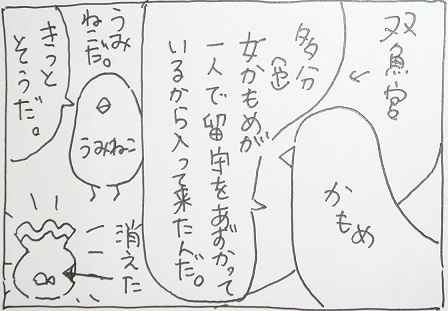 双魚宮
かもめ
多分
女かもめが
一人で留守をあずかって
いるから入って来たんだ。
うみ
ねこだ。
きっと
そうだ。
うみねこ
消えた